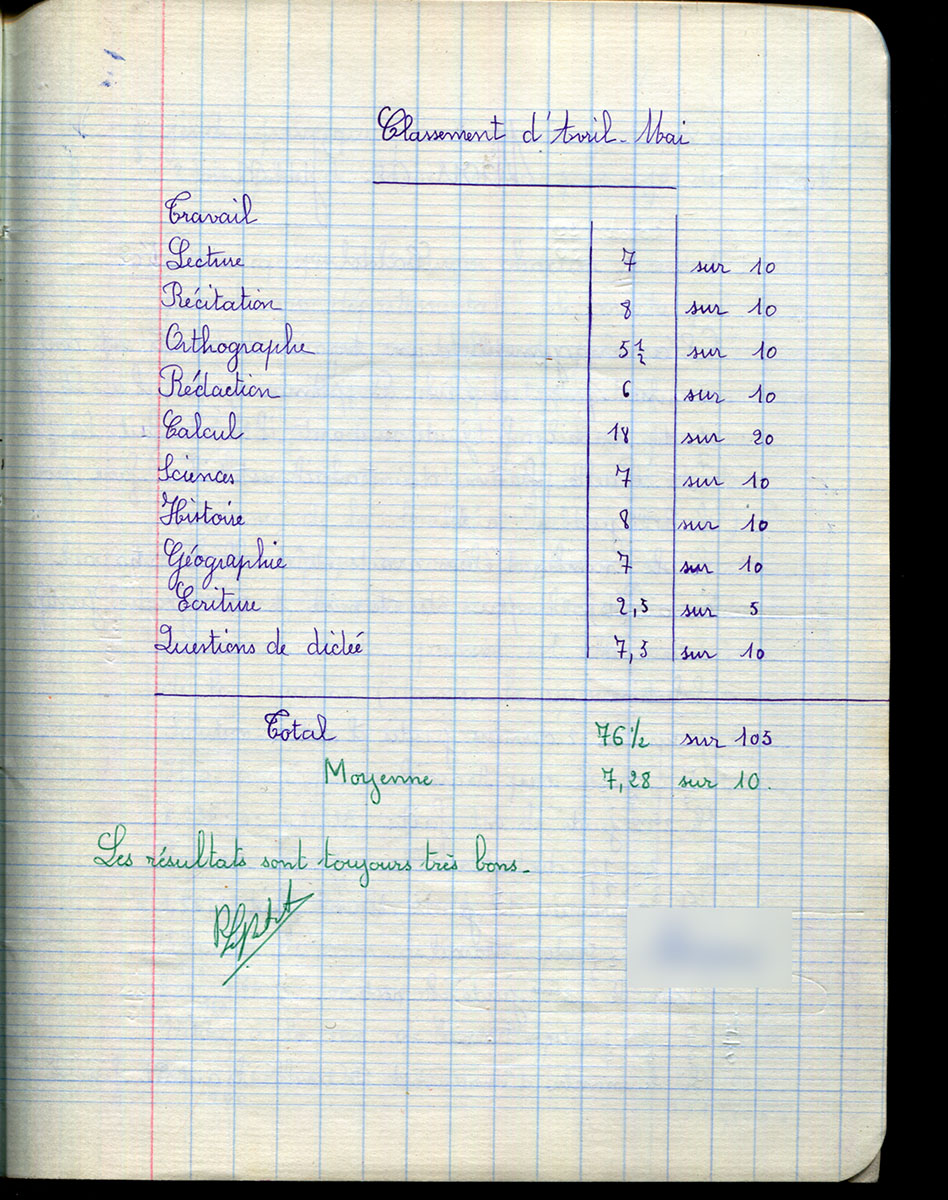 Classement d'Avril-Mai
Travail
Lecture 7 sur 10
Récitation 8 sur 10
Orthographe 5 1/2 sur 10
Rédaction 6 sur 10
Calcul 18 sur 20
Sciences 7 sur 10
Histoire 8 sur 10
Géographie 7 sur 10
Ecriture 2,5 sur 5
Questions de dictée 7,5 sur 10
Total 76 1/2 sur 105
Moyenne 7,28 sur 10.
Les résultats sont toujours très bons.